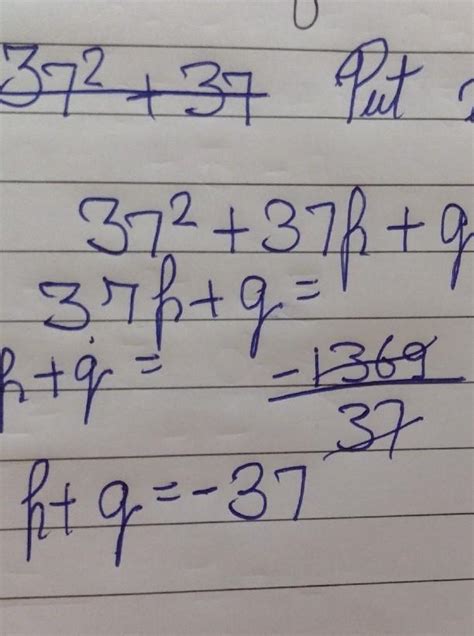 37² + 37 Put
37² + 37p + q
37p + q =
p + q = -1369/37
p + q = -37